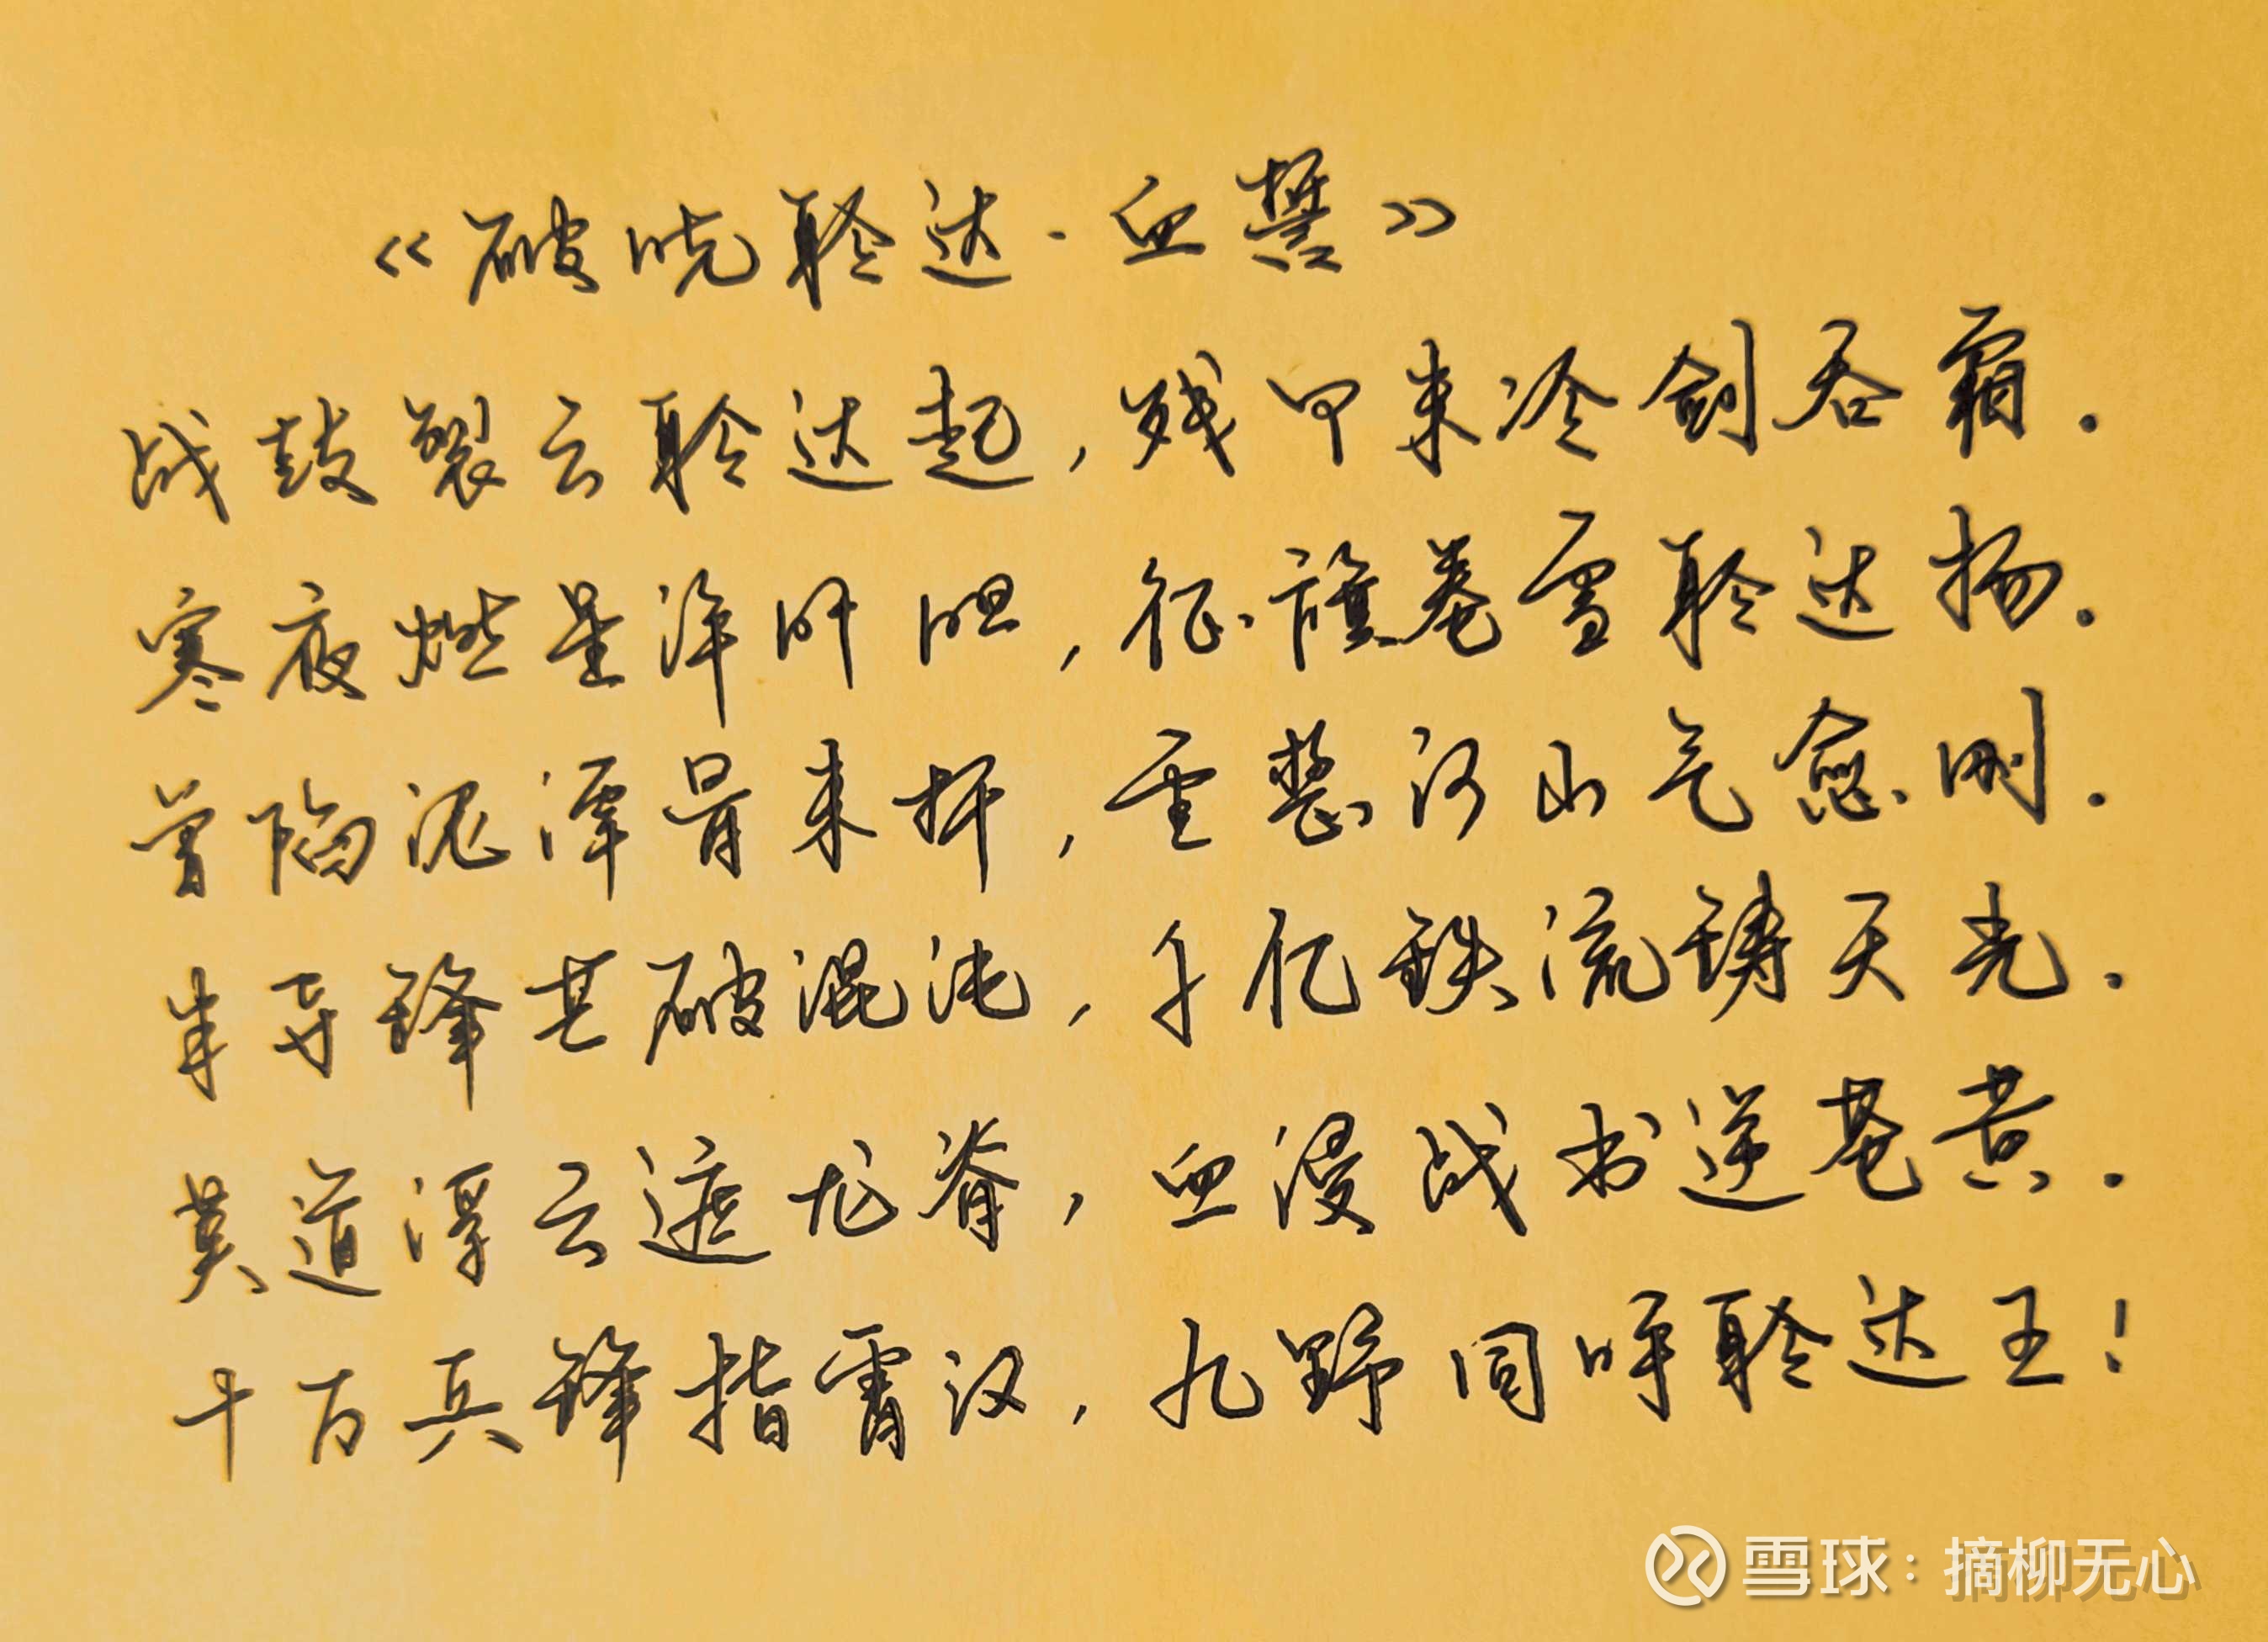 《破晓聆达·血誓》
战鼓裂云聆达起，残甲未冷剑吞霜．
寒夜燃星淬肝胆，征旗卷雪聆达扬．
曾陷泥潭骨未折，重整河山气愈刚．
半导锋芒破混沌，千亿铁流铸天光．
莫道浮云遮龙脊，血浸战书逆苍黄．
十万兵锋指霄汉，九野同呼聆达王！
雪球：摘柳无心